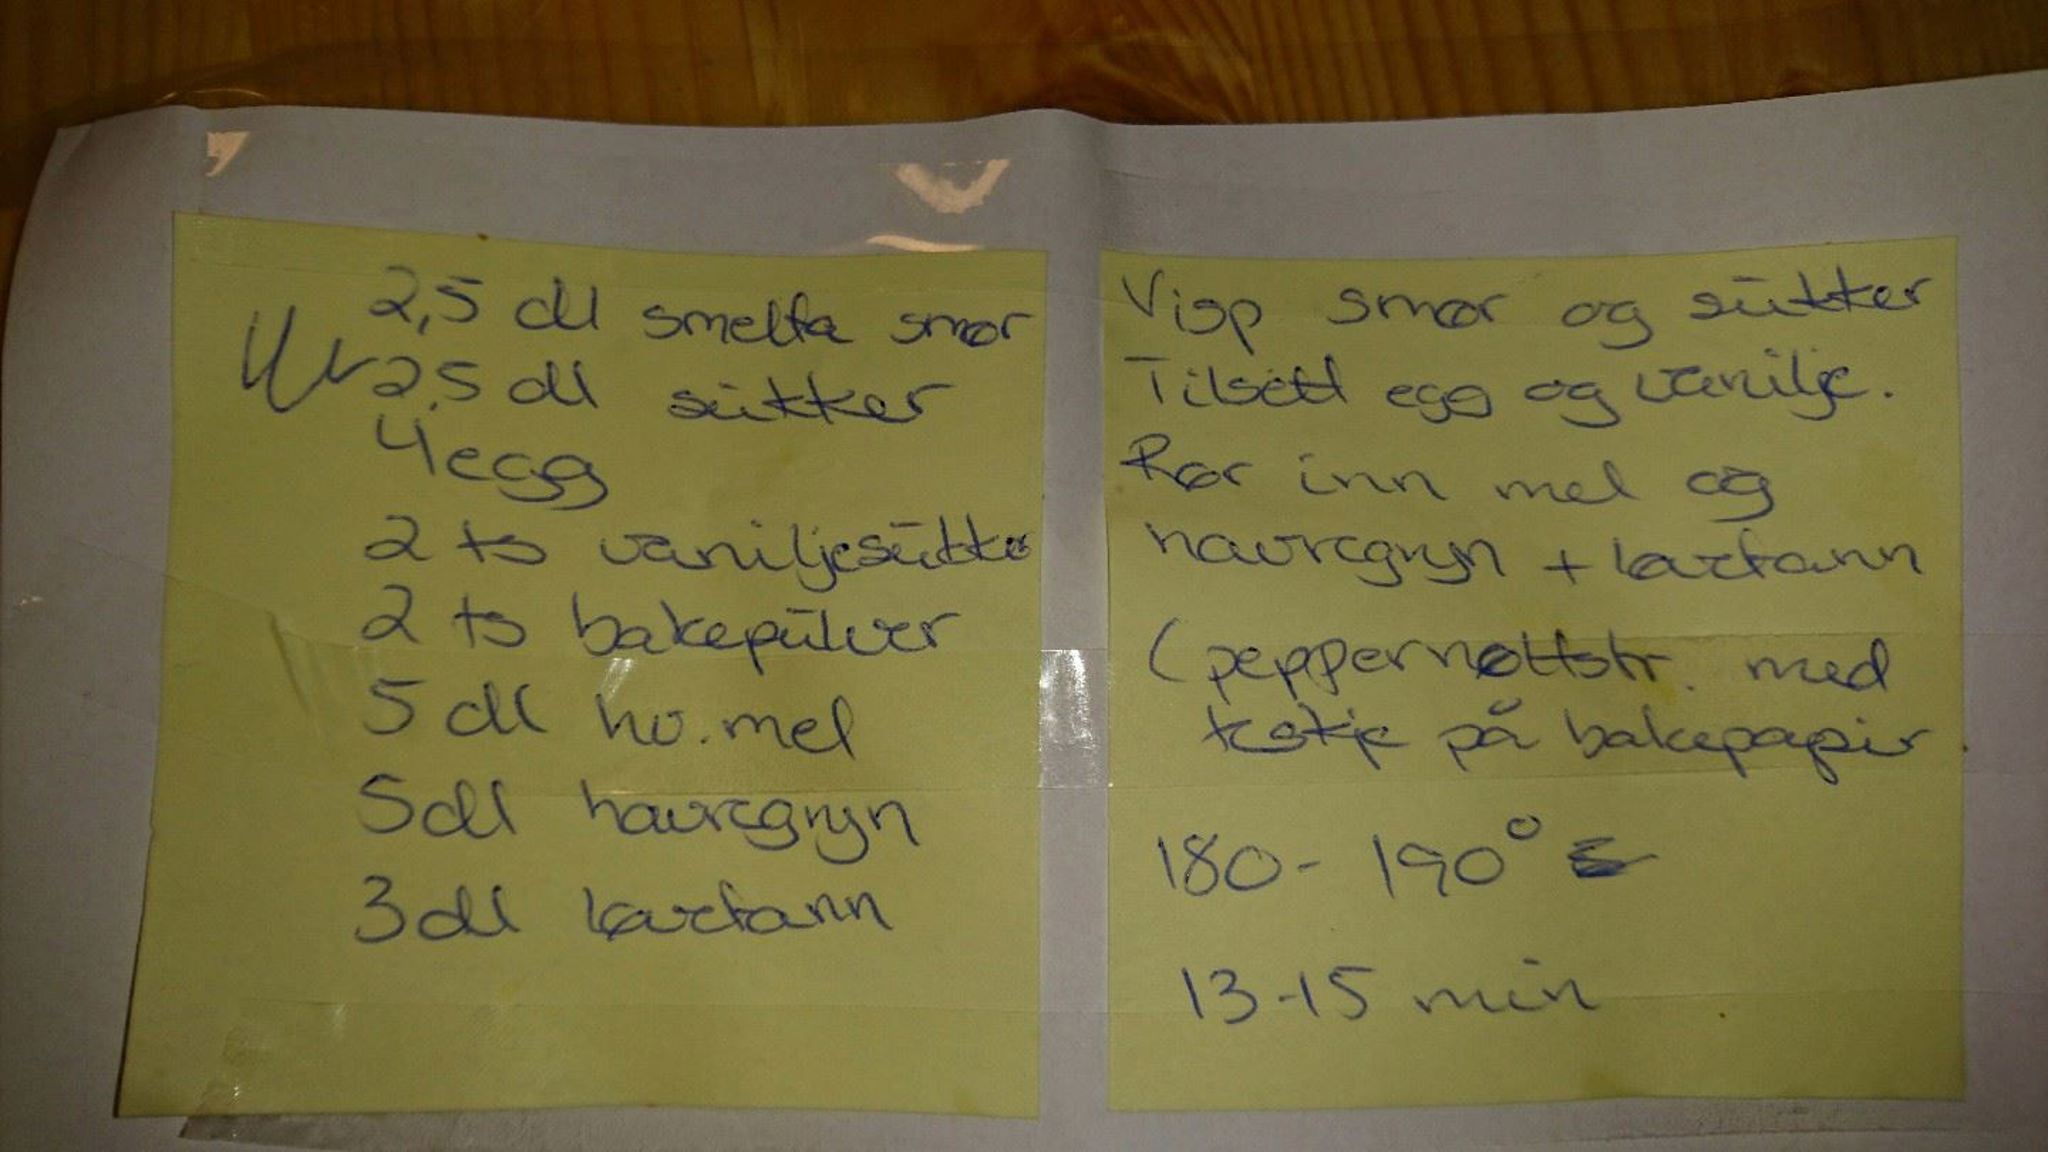 2,5 dl smelta smør
2,5 dl sukker
4 egg
2 ts vaniljesukker
2 ts bakepulver
5 dl hv. mel
5 dl havregryn
3 dl
Visp smør og sukker
Tilsett egg og vanilje.
Rør inn mel og
havregryn +
(peppernøttstr. med
teskje på bakepapir.
180 - 190°
13-15 min